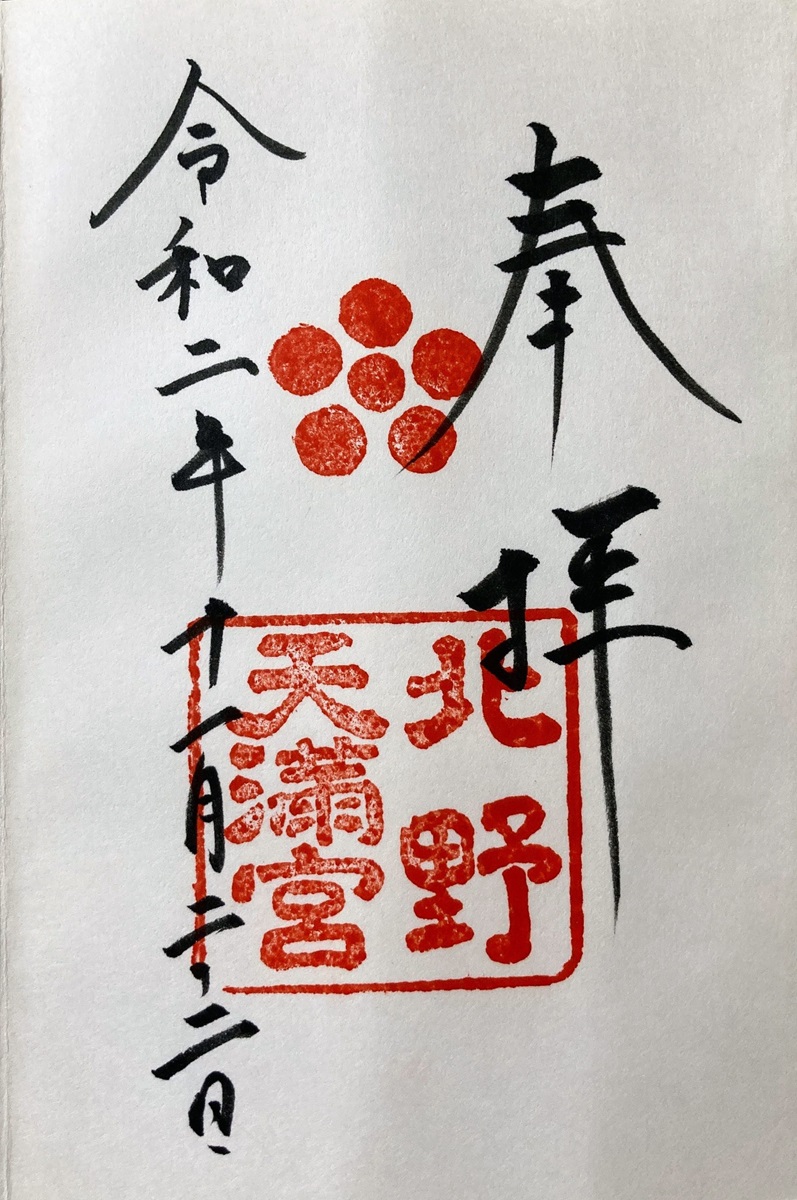 奉拝
北野
天満宮
令和二年十一月二十二日